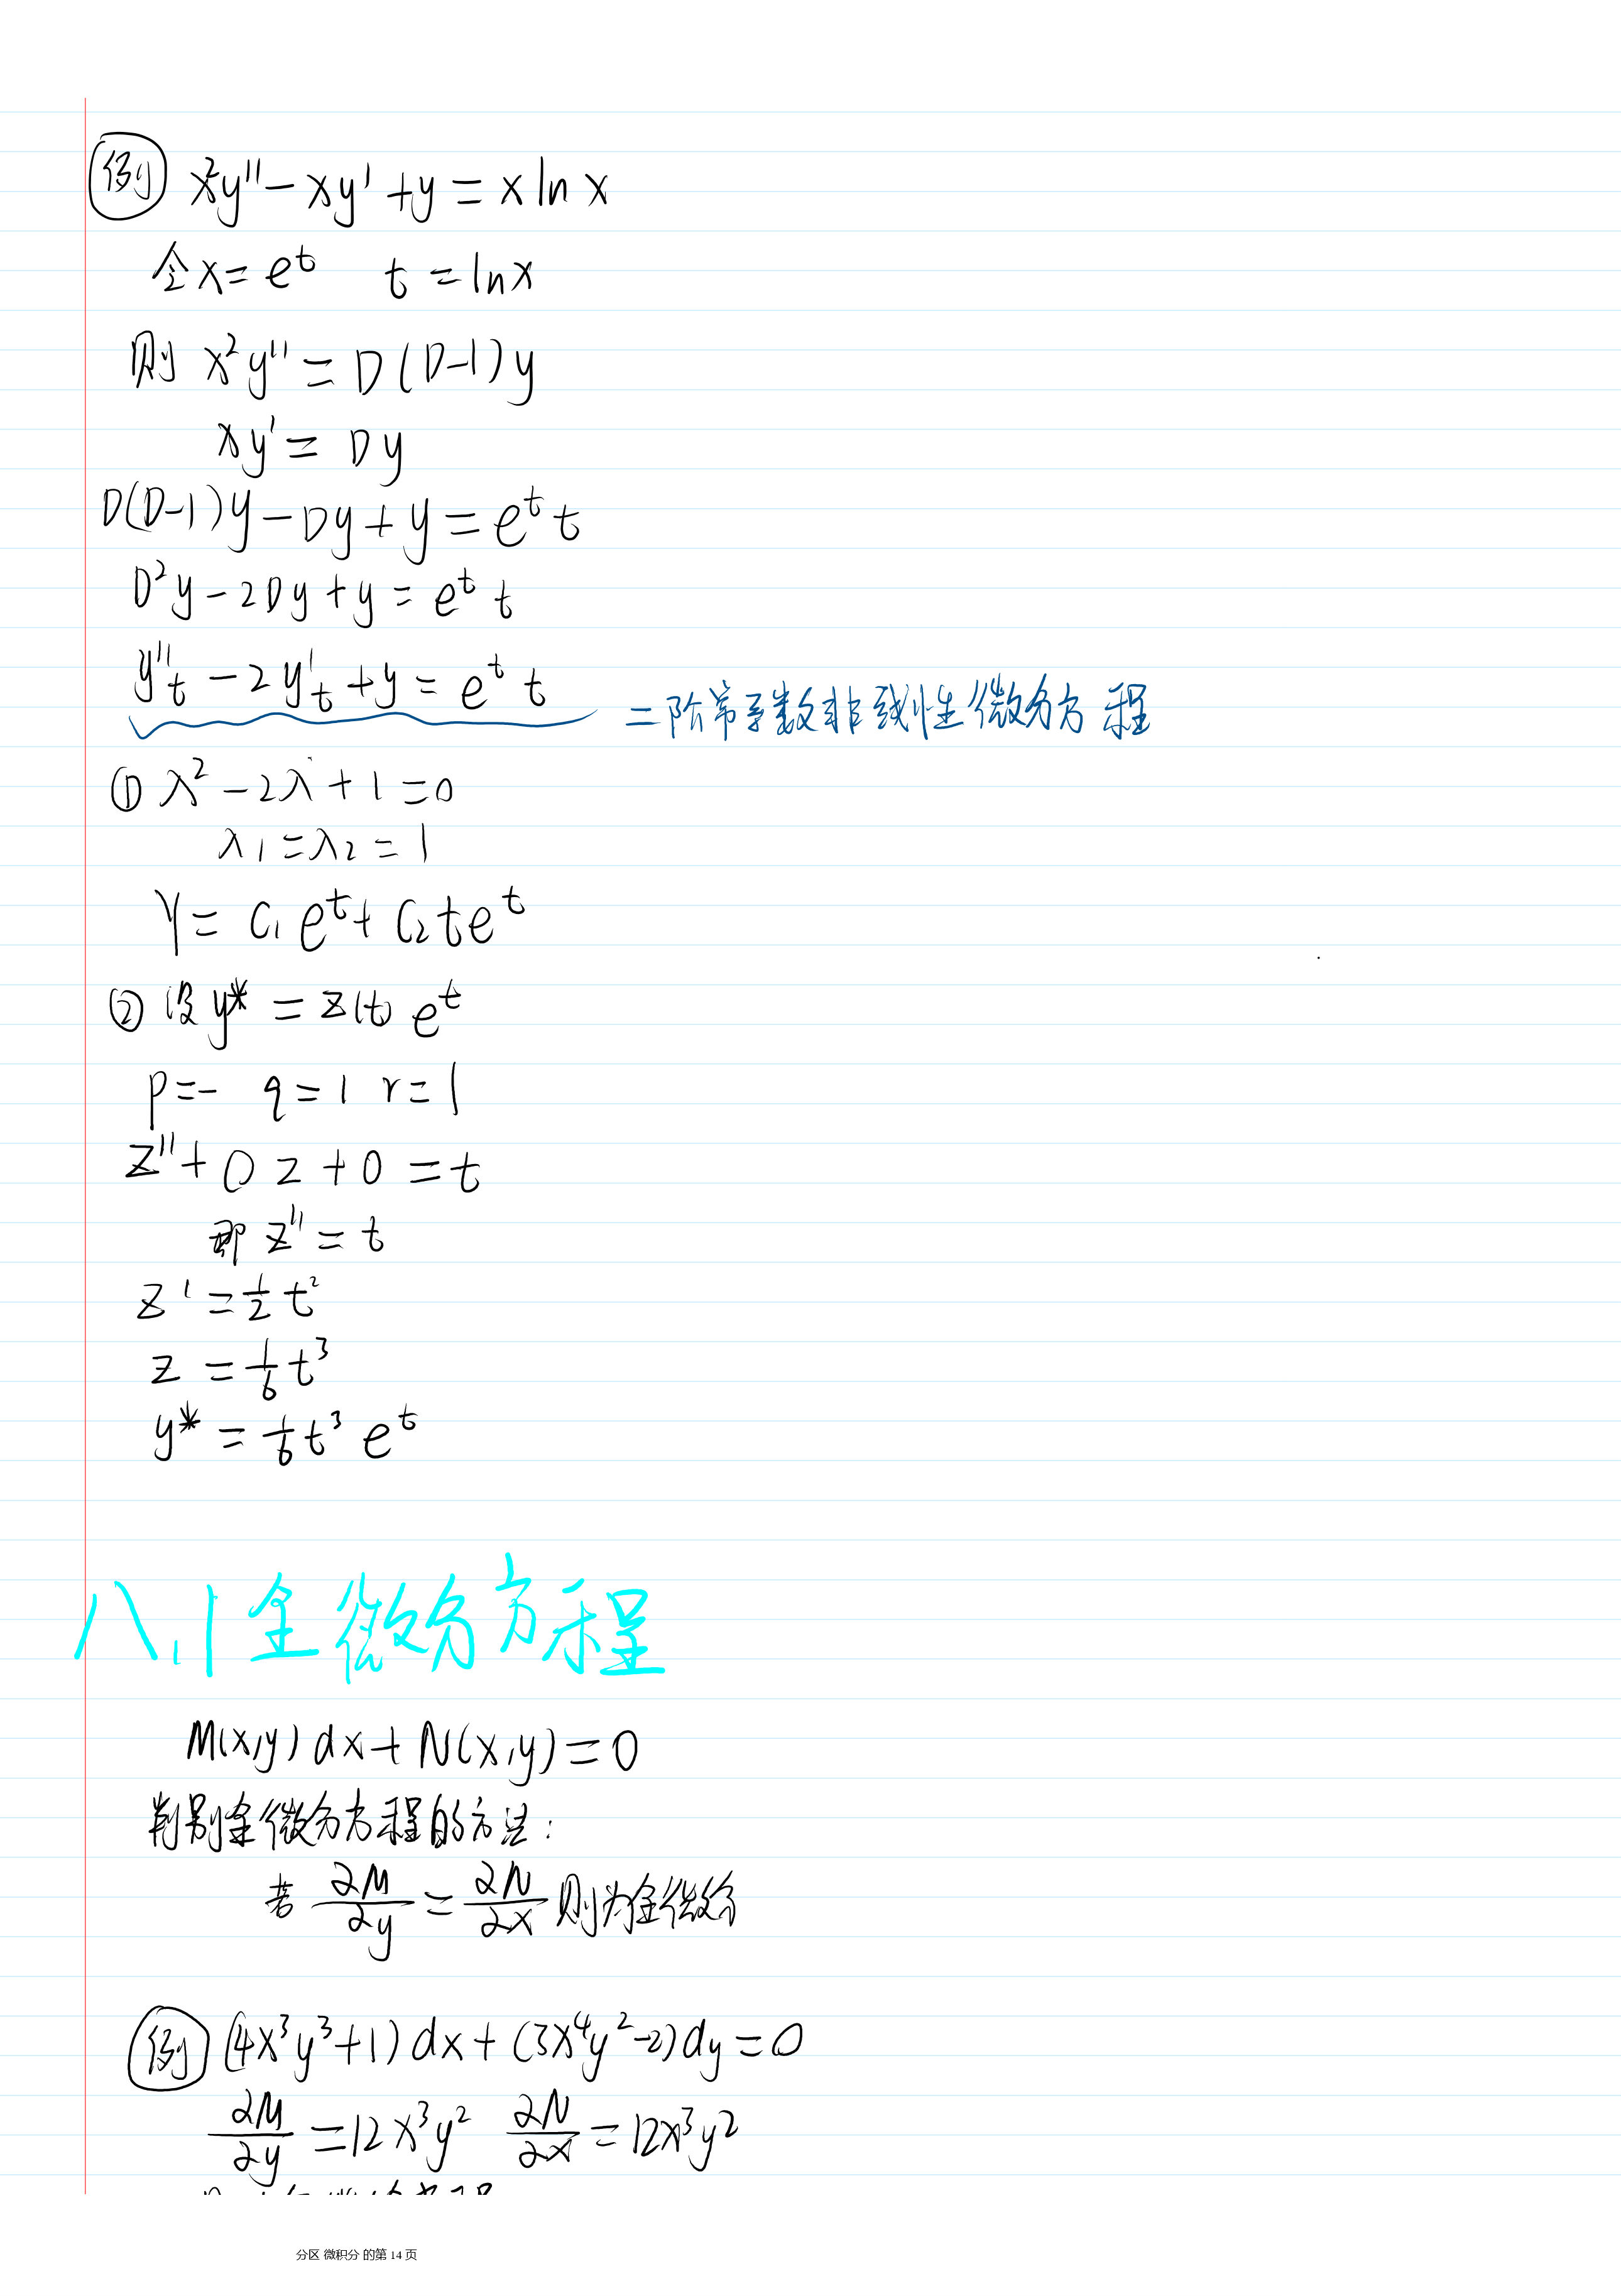 例 x²y''-xy'+y=xlnx
令x=eᵗ t=lnx
则 x²y''=D(D-1)y
xy'=Dy
D(D-1)y-Dy+y=eᵗt
D²y-2Dy+y=eᵗt
y''ₜ-2y'ₜ+y=eᵗt 二阶常系数非线性微分方程
① λ²-2λ+1=0
λ₁=λ₂=1
Y=C₁eᵗ+C₂teᵗ
② 设y*=z(t)eᵗ
p=- q=1 r=1
z''+0z+0=t
即z''=t
z'=½t²
z=⅙t³
y*=⅙t³eᵗ
八.1全微分方程
M(x,y)dx+N(x,y)=0
判别全微分方程的方法:
若 ∂M/∂y=∂N/∂x 则为全微分
例 (4x³y³+1)dx+(3x⁴y²-2)dy=0
∂M/∂y=12x³y² ∂N/∂x=12x³y²
分区 微积分 的第 14 页